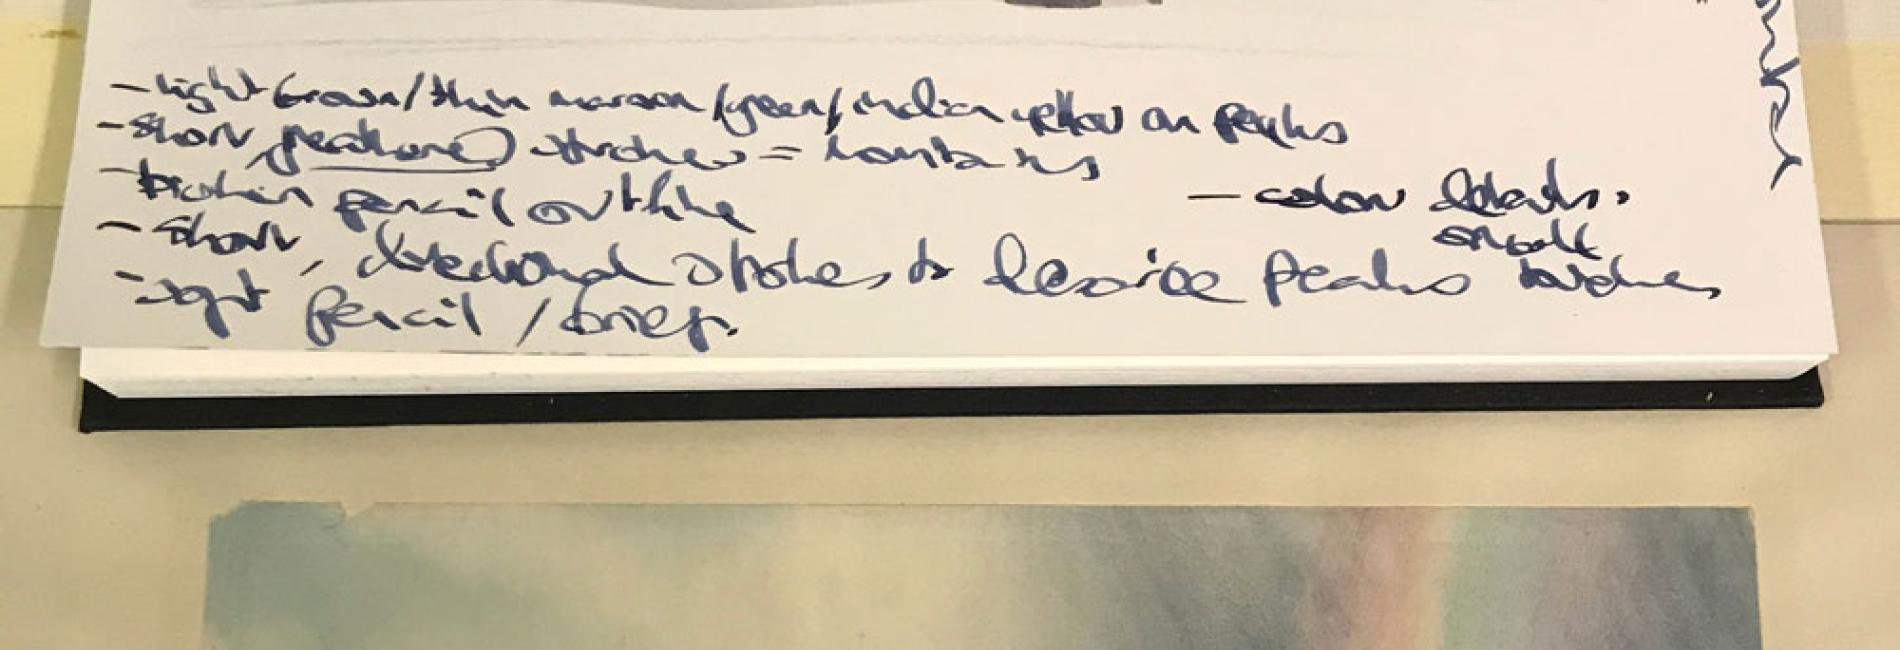 - light brown/thin maroon/green/indian yellow on peaks
- short, strokes = mountains
- broken pencil outline
- color details.
small touches
- short, directional strokes to describe peaks
- light pencil / brief.